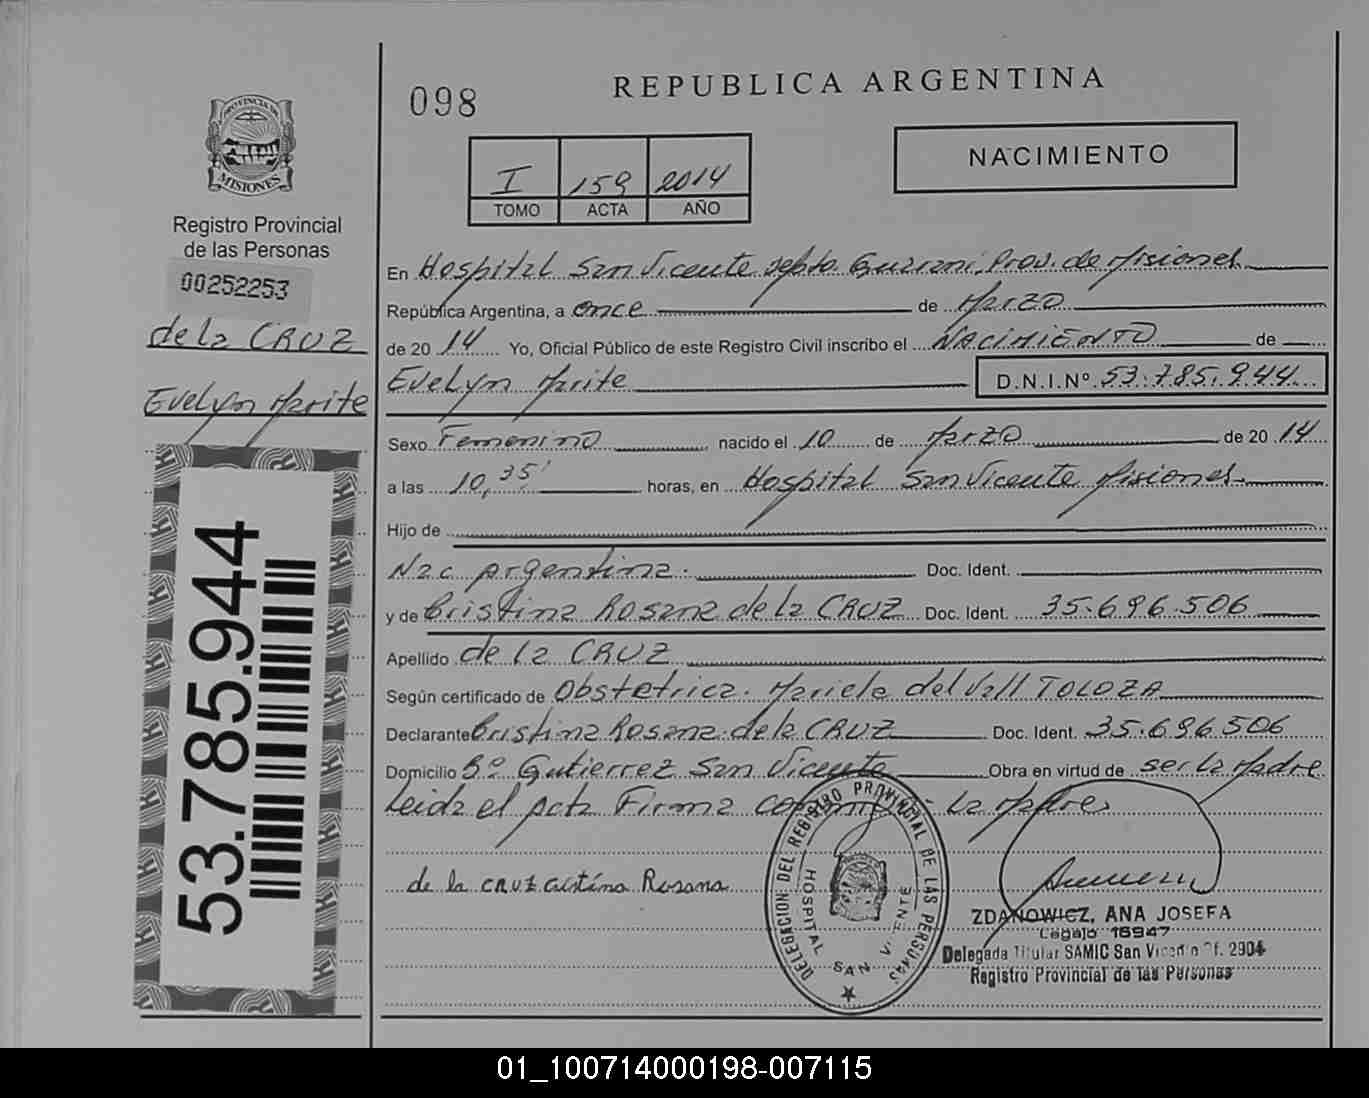 PROVINCIA DE
MISIONES
Registro Provincial
de las Personas
00252253
de la CRUZ
Evelyn Marite
53.785.944
098
REPUBLICA ARGENTINA
NACIMIENTO
I 159 2014
TOMO ACTA AÑO
En Hospital San Vicente Depto. Guarani, Prov. de Misiones
República Argentina, a once de Marzo
de 2014 Yo, Oficial Público de este Registro Civil inscribo el NACIMIENTO de
Evelyn Marite D.N.I.Nº 53.785.944
Sexo Femenino nacido el 10 de Marzo de 2014
a las 10,35' horas, en Hospital San Vicente Misiones
Hijo de
Nac Argentina. Doc. Ident.
y de Cristina Rosana de la CRUZ Doc. Ident. 35.696.506
Apellido de la CRUZ
Según certificado de Obstetrica. Mariela del Vall TOLOZA
Declarante Cristina Rosana de la CRUZ Doc. Ident. 35.696.506
Domicilio Bº Gutierrez San Vicente Obra en virtud de ser la Madre
Leida el acta Firma la Madre
de la CRUZ Cristina Rosana
DELEGACION DEL REGISTRO PROVINCIAL DE LAS PERSONAS
HOSPITAL SAN VICENTE
ZDANOWICZ, ANA JOSEFA
Legajo 16947
Delegada Titular SAMIC San Vicente Of. 2904
Registro Provincial de las Personas
01_100714000198-007115